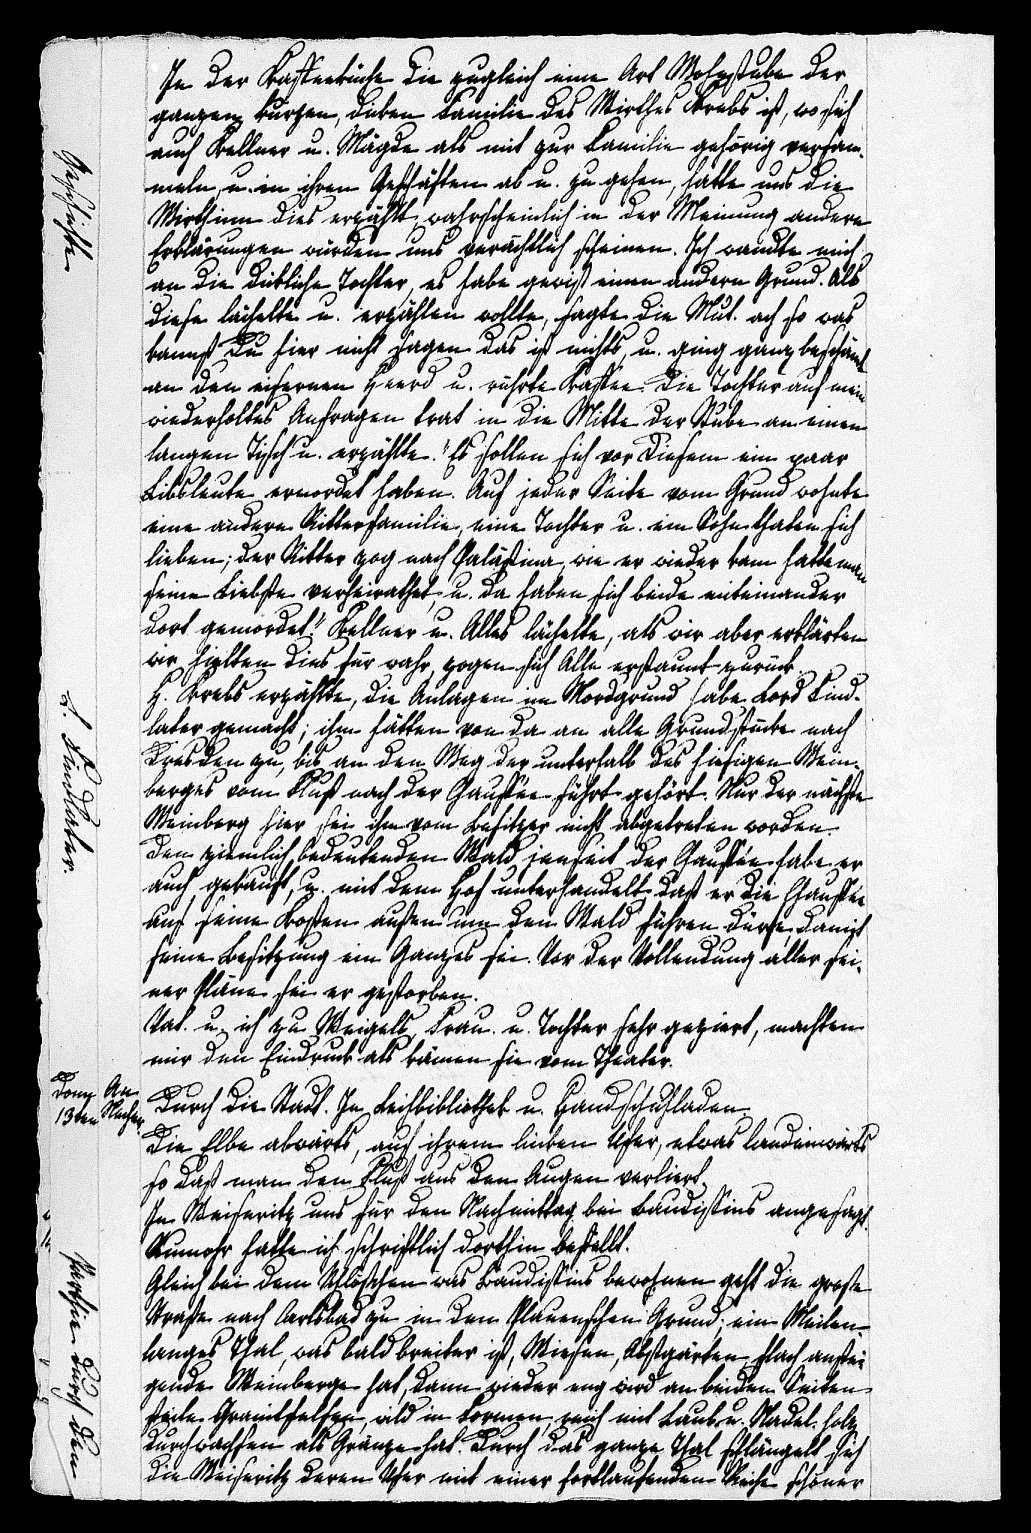 In der Kaffeeküche die zugleich eine Art Wohnstube der
ganzen kurzen, dicken Familie des Wirthes Krebs ist, wo sich
auch Kellner u. Mägde als mit zur Familie gehörig versam-
meln, u. in ihren Geschäften ab u. zu gehen, hatte uns die
Wirthinn dies erzählt wahrscheinlich in der Meinung andere
Erklärungen würden uns verächtlich scheinen. Ich wandte mich
an die dickliche Tochter, es habe gewiß einen andern Grund. Als
diese lächelte u. erzählen wollte, sagte die Mut. ach so was
kannst Du hier nicht sagen das ist nichts, u. ging ganz beschämt
an den eisernen Heerd u. rührte Kaffee. Die Tochter auf mein
wiederholtes Anfragen trat in die Mitte der Stube an einen
langen Tisch u. erzählte. "Es sollen sich vor Diesem ein paar
Liebsleute ermordet haben. Auf jeder Seite vom Grund wohnte
eine andere Ritterfamilie, eine Tochter u. ein Sohn thaten sich
lieben; der Ritter zog nach Palästina, wie er wieder kam hatte man
seine Liebste verheirathet, u. da haben sich beide miteinander
dort gemordet." Kellner u. Alles lächelte, als wir aber erklärten
wir hielten dies für wahr, zogen sich Alle erstaunt zurück.
H. Krebs erzählte, die Anlagen im Mordgrund habe Lord Find-
later gemacht; ihm hätten von da an alle Grundstücke nach
Dresden zu, bis an den Weg der unterhalb des hiesigen Wein-
berges vom Fluß nach der Chaussée führt gehört. Nur der nächste
Weinberg hier sei ihm vom Besitzer nicht abgetreten worden.
Den ziemlich bedeutenden Wald jenseit der Chaussée habe er
auch gekauft, u. mit dem Hof unterhandelt daß er die Chaussée
auf seine Kosten außen um den Wald führen dürfe, damit
seine Besitzung ein Ganzes sei. Vor der Vollendung aller sei-
ner Pläne sei er gestorben.
Vat. u. ich zu Weigels, Frau. u. Tochter sehr geziert, machten
mir den Eindruck als kämen sie vom Theater.
Durch die Stadt. In Leihbibliothek u. Handschuhladen.
Die Elbe abwärts, auf ihrem linken Ufer, etwas landeinwärts
so daß man den Fluß aus den Augen verliert.
In Weiseritz uns für den Nachmittag bei Baudissins angesagt.
Rumohr hatte ich schriftlich dorthin bestellt.
Gleich bei dem Schlößchen was Baudissins bewohnen geht die große
Straße nach Carlsbad zu in den Plauenschen Grund; ein Meilen-
langes Thal, was bald breiter ist, Wiesen, Obstgärten flach anstei-
gende Weinberge hat, dann wieder eng wird an beiden Seiten
steile Granitfelsen, wild in Formen, reich mit Laub u. Nadel-holz
durchwachsen als Gränze hat. Durch das ganze Thal schlängelt sich
die Weiseritz deren Ufer mit einer fortlaufenden Reihe schöner
Geschichte
L. Findlater.
Don. 13ten
Parthie durch den